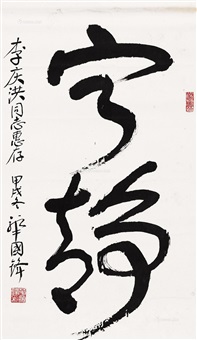 宁静
李庆洪同志惠存
甲戌冬 华国锋